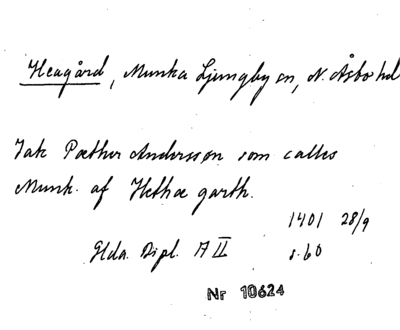 Heagård, Munka Ljungby sn, N. Åsbo hd
Jak Pæther Andersson som calles
Munk. af Hethæ garth.
1401 28/9
Glda. Dipl. A II s. 60
Nr 10624